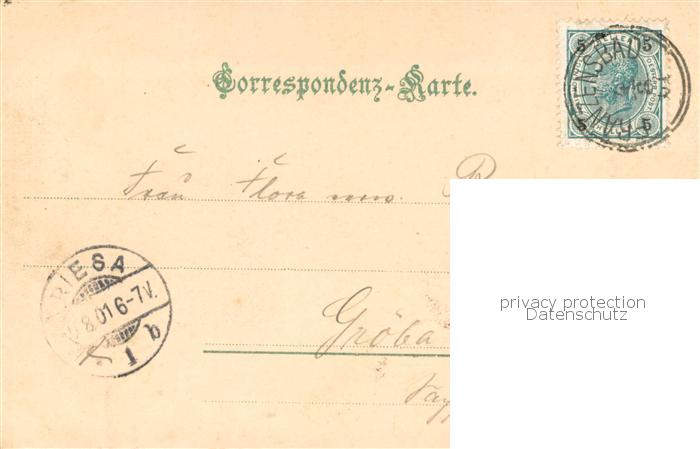 Correspondenz-Karte.
5 5
FRANZENSBAD
5 5
Frau Flora
RIESA
8.01 6-7V.
1 b
Gröba
privacy protection
Datenschutz